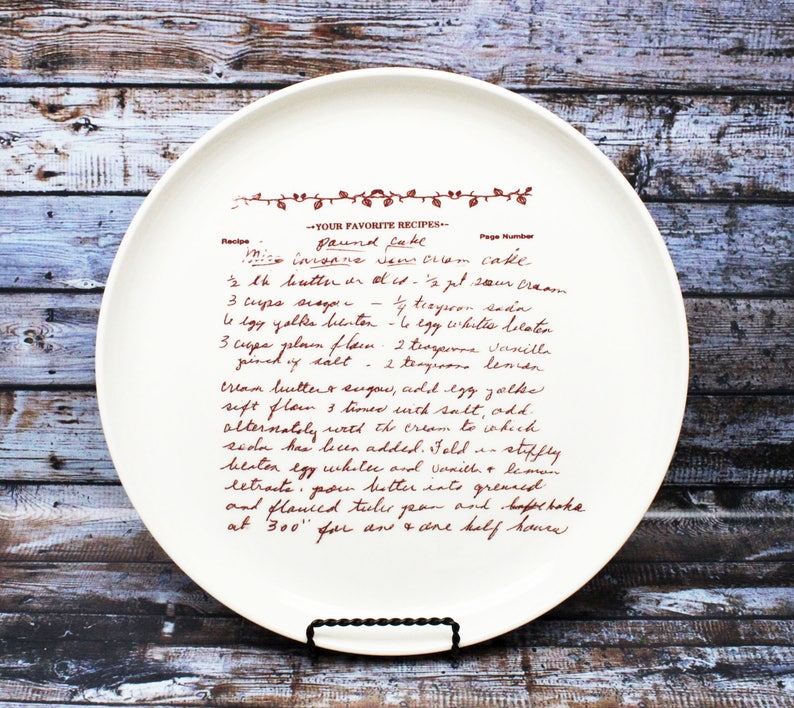 YOUR FAVORITE RECIPES
Recipe pound cake Page Number
Miss Carsons Sour Cream cake
1/2 lb butter or oleo - 1/2 pt sour cream
3 cups sugar - 1/4 teaspoon soda
6 egg yolks beaten - 6 egg whites beaten
3 cups plain flour - 2 teaspoons vanilla
pinch of salt - 2 teaspoons lemon
cream butter & sugar, add egg yolks
sift flour 3 times with salt, add
alternately with the cream to which
soda has been added. Fold in stiffly
beaten egg whites and vanilla & lemon
extracts. pour batter into greased
and floured tube pan and bake
at 300° for one & one half hours